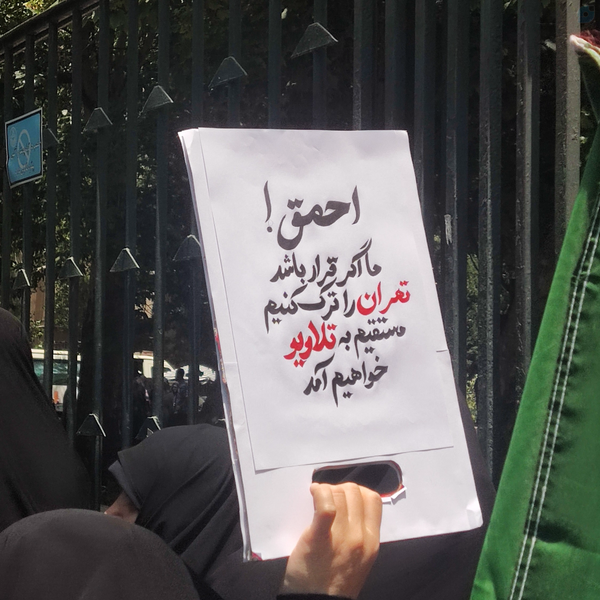 احمق!
ما اگر قرار باشد
تهران را ترک کنیم
مستقیم به تلاویو
خواهیم آمد